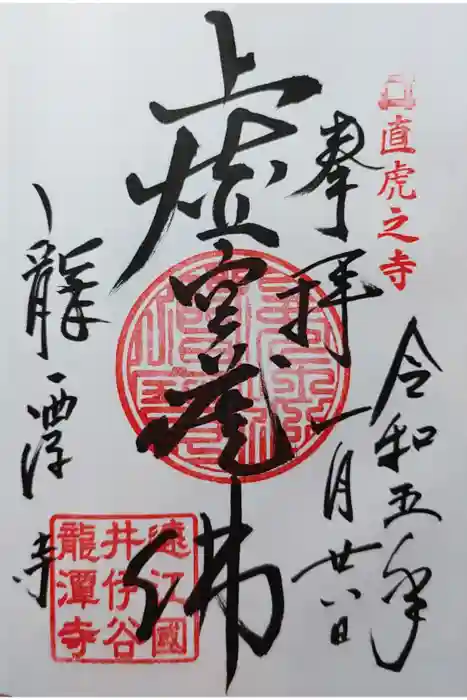 直虎之寺
令和五年
奉拝
一月廿八日
虚空蔵佛
龍潭寺
遠江國
井伊谷
龍潭寺